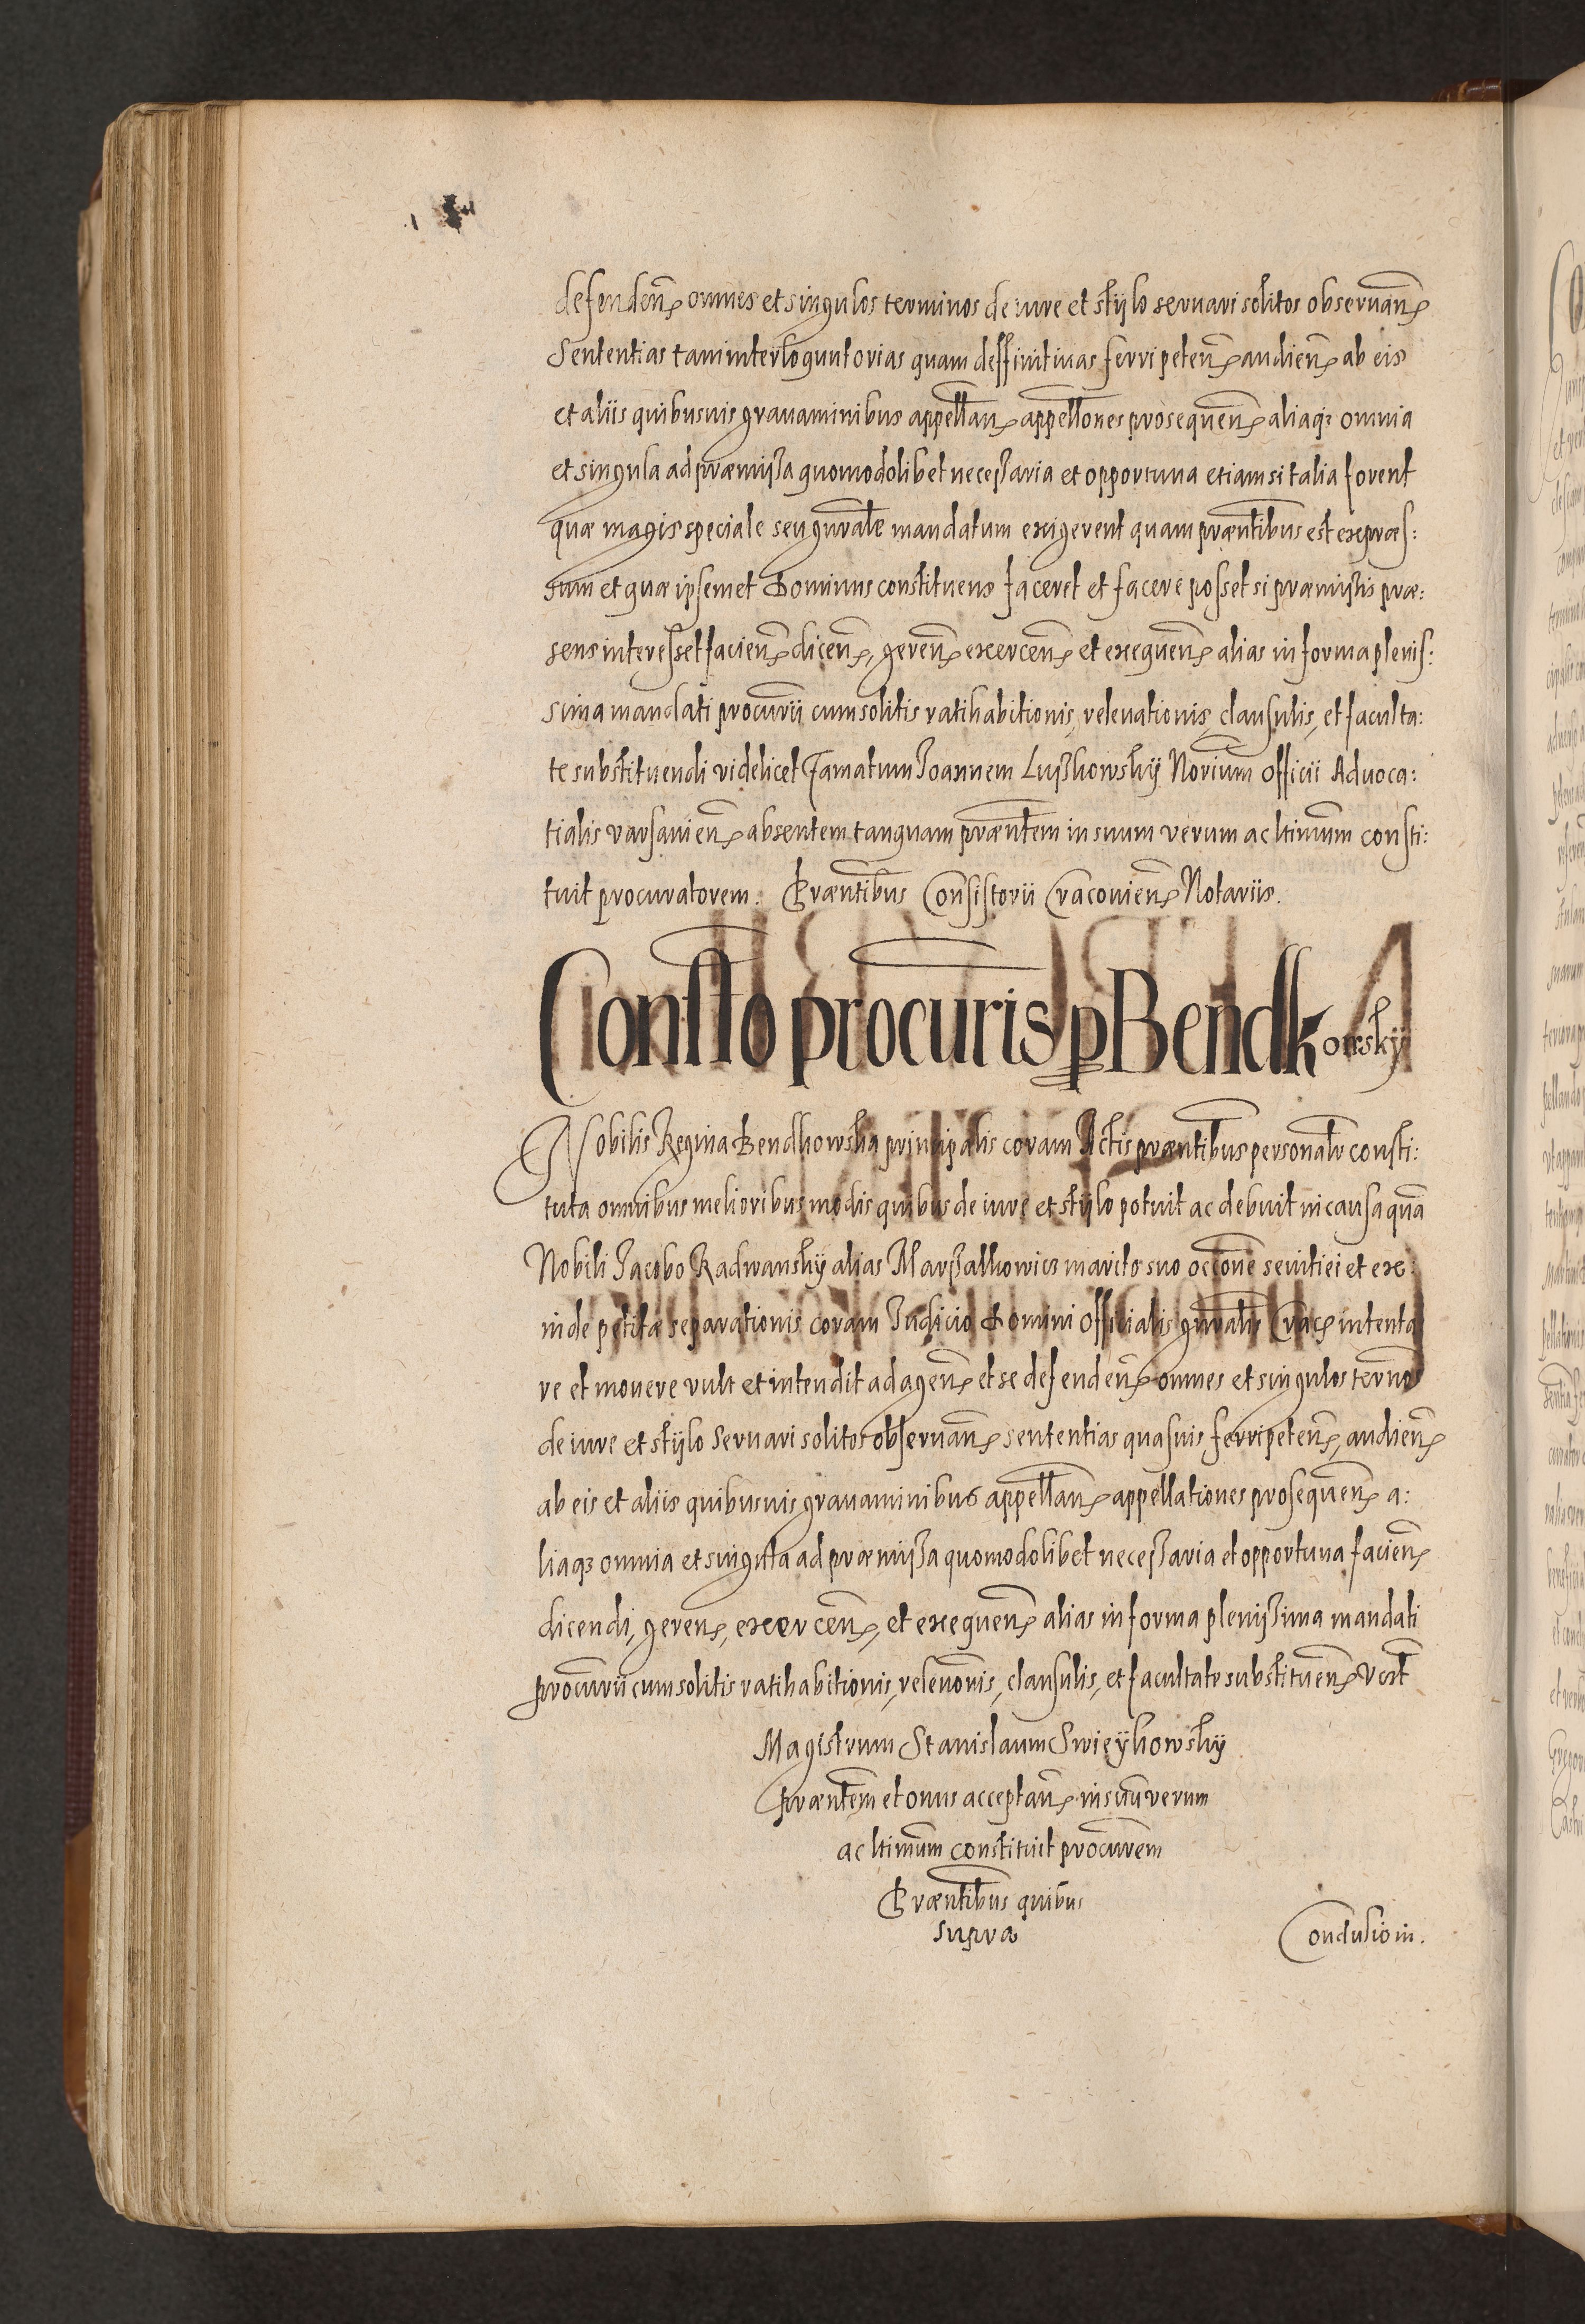 defenden̄ omnes et singulos terminos de iure et stÿlo servari solitos obseruan̄
Sententias tam interloquutorias quam deffinitiuas ferri peten̄ audien̄ ab eis
et aliis quibusuis grauaminibus appellan̄ appellōnes prosequen̄ aliaqȝ omnia
et singula ad præmissa quomodolibet necessaria et opportuna etiamsi talia forent
quæ magis speciale seu gn̄rale mandatum exigerent quam præn̄tibus est expræs:
sum et quæ ipsemet Dominus constituens faceret et facere posset si præmissis præ:
sens interesset facien̄ dicen̄, geren̄ exercen̄ et exequen̄ alias in forma plenis:
sima mandati procur̄ii cum solitis ratihabitionis, releuationis, clausulis, et faculta:
te substituendi videlicet Famatum Joannem Luszkowskÿ Nōrium Officii Aduoca:
tialis varsauien̄ absentem tanquam præn̄tem in suum verum ac ltimum consti:
tuit procuratorem. Præn̄tibus Consistorii Cracouien̄ Notariis.
Constto procuris p Bendkowskÿ
Nobilis Regina Bendkowska principalis coram Actis præn̄tibus personalr̄ consti:
tuta omnibus melioribus modis quibus de iure et stÿlo potuit ac debuit in causa quā
Nobili Jacobo Radwanskÿ alias Marszalkowicz marito suo occ̄one seuitiei et ex:
inde petitæ separationis coram Judicio Domini Officialis gn̄ralis Crac̄ intenta
re et mouere vult et intendit ad agen̄ et se defenden̄ omnes et singulos term̄nos
de iure et stÿlo seruari solitos obseruan̄ sententias quasuis ferri peten̄, audien̄
ab eis et aliis quibusuis grauaminibus appellan̄ appellationes prosequen̄ a:
liaqȝ omnia et singula ad præmissa quomodolibet necessaria et opportuna facien̄
dicendi, geren̄, exercen̄, et exequen̄ alias in forma plenissima mandati
procur̄ii cum solitis ratihabitionis, releuōnis, clausulis, et facultate substituen̄ vcɫt
Magistrum Stanislaum Swięÿkowskÿ
præn̄tem et onus acceptan̄ in suū verum
ac ltimum constituit procur̄em
Præn̄tibus quibus
supra
Conclusio in.